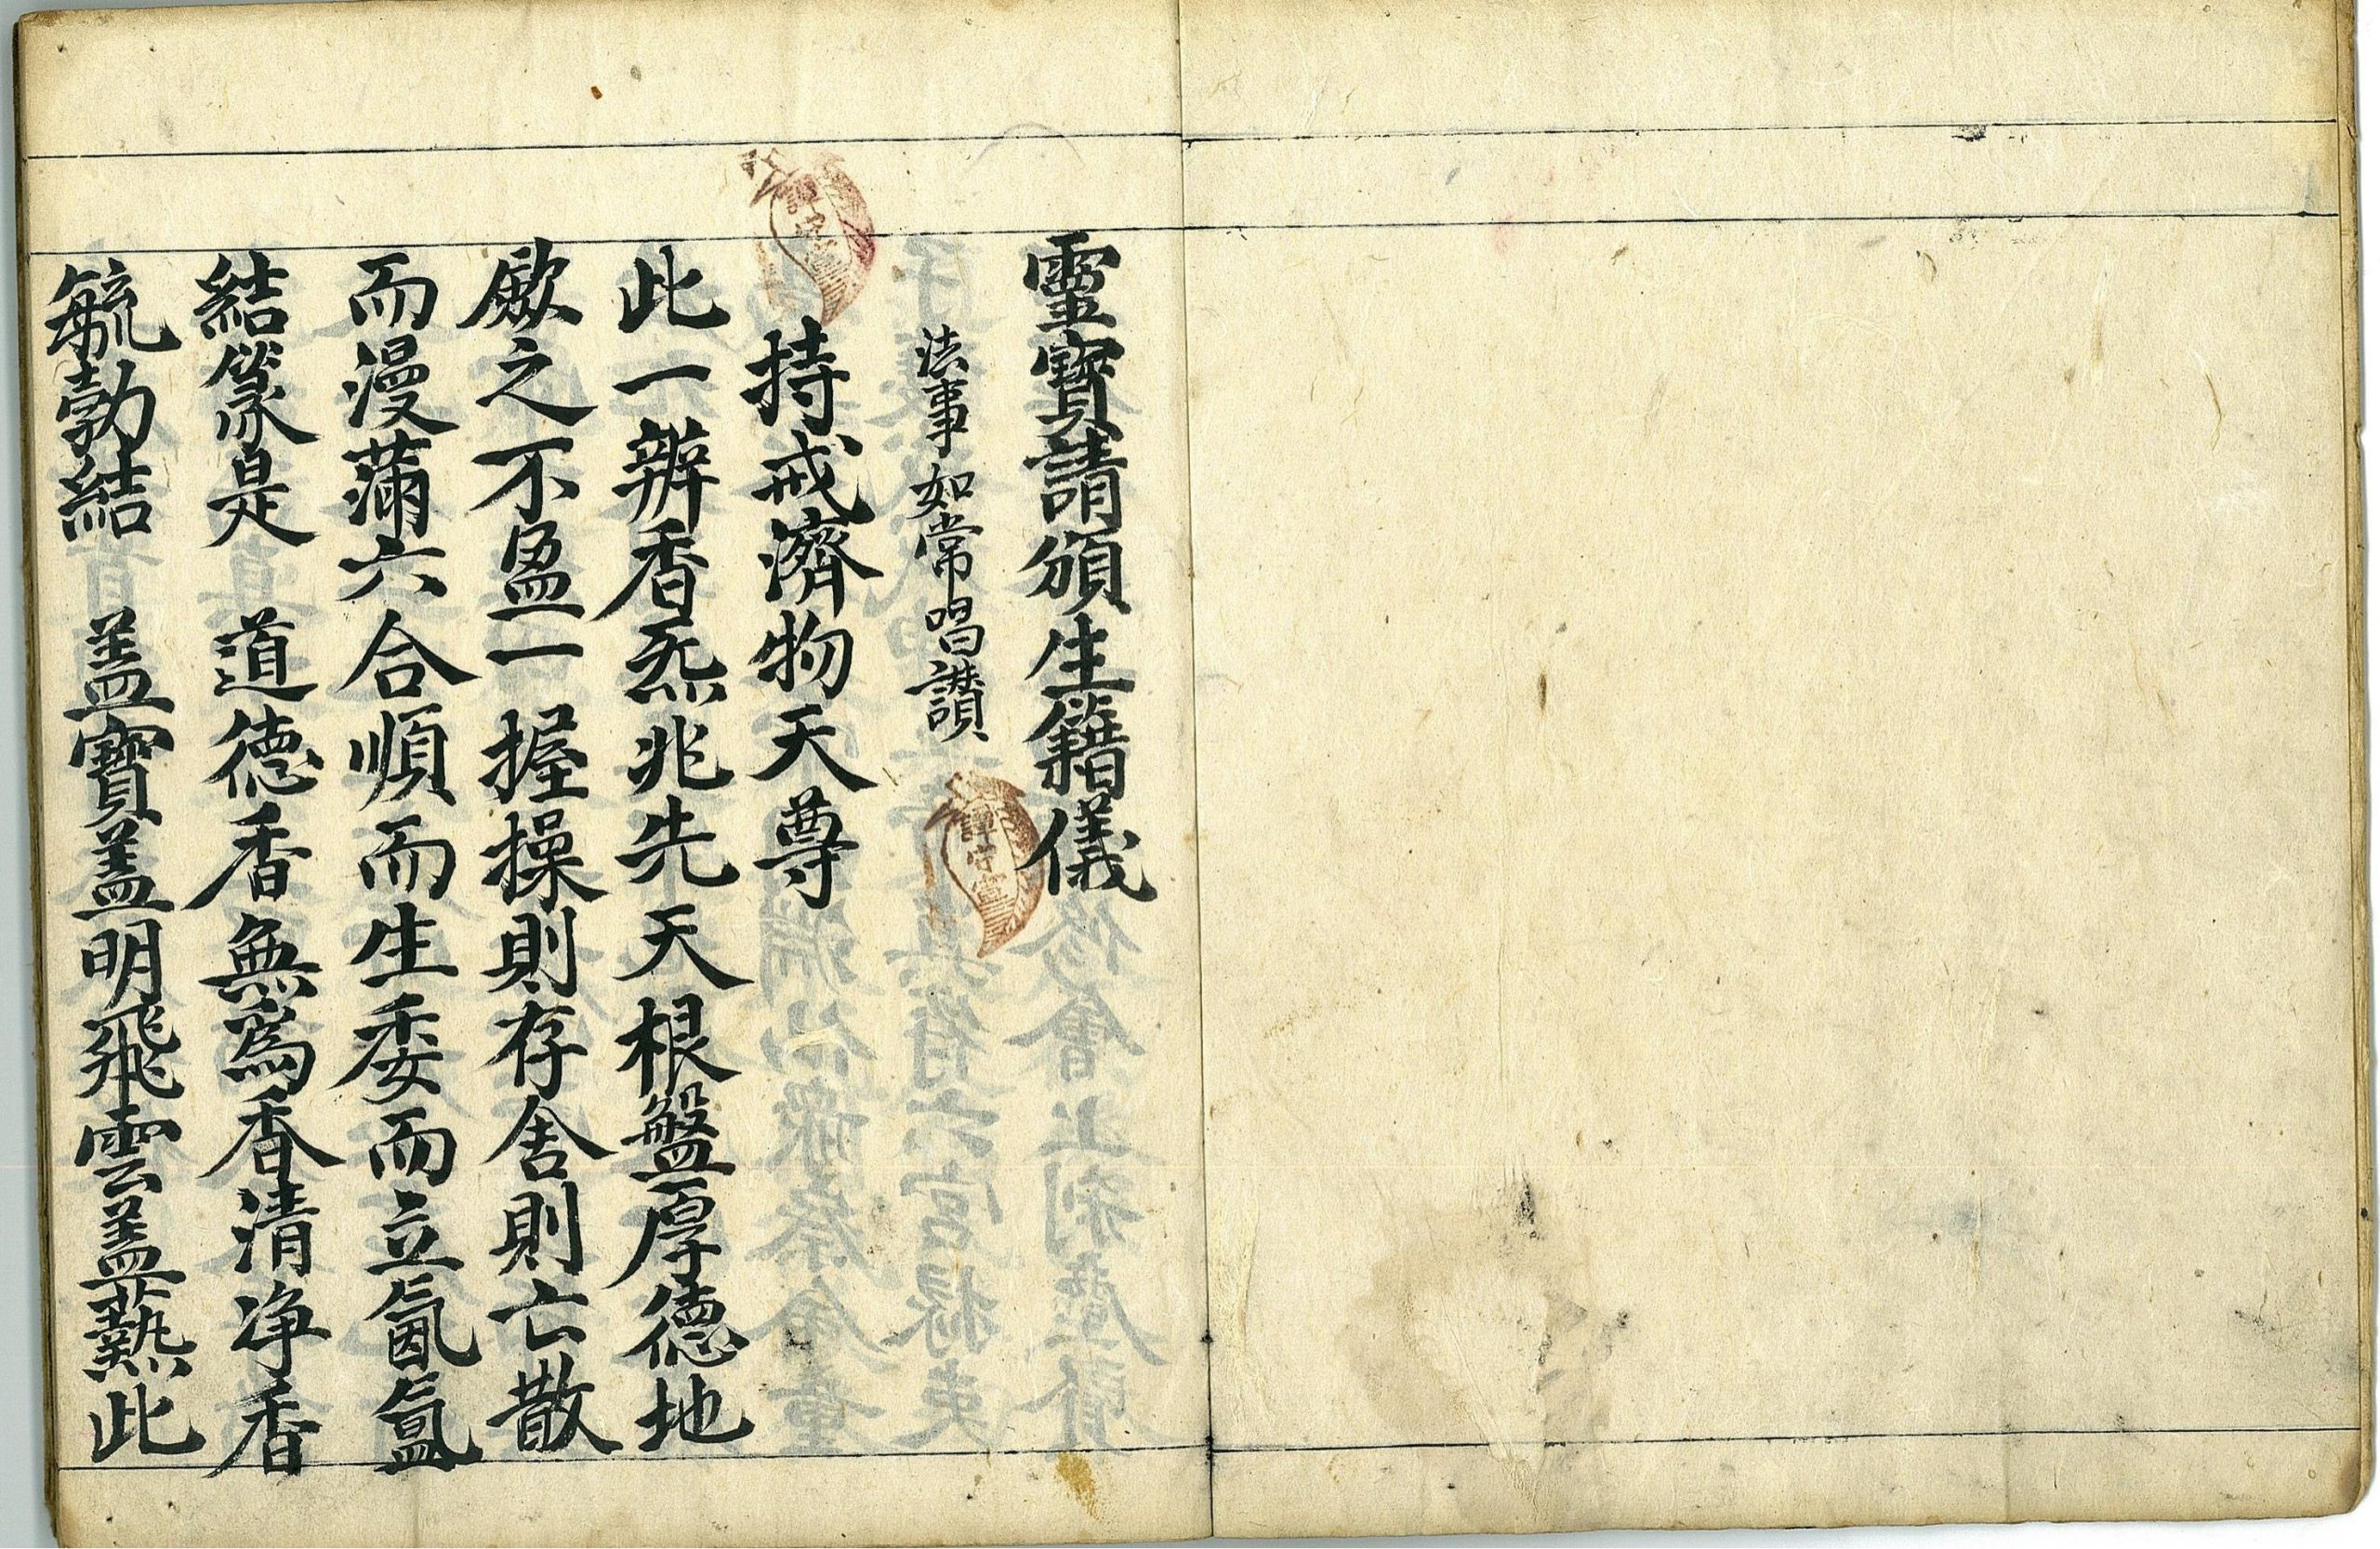 靈寶請頒生籍儀
法事如常唱讃
持戒濟物天尊
此一辦香炁兆先天根盤厚德地
厥之不盈一握操則存舍則亡散
而漫滿六合順而生委而立氤氳
結篆是 道德香無為香清净香
毓勃結 盖寶盖明飛雲盖爇此
譚守眞